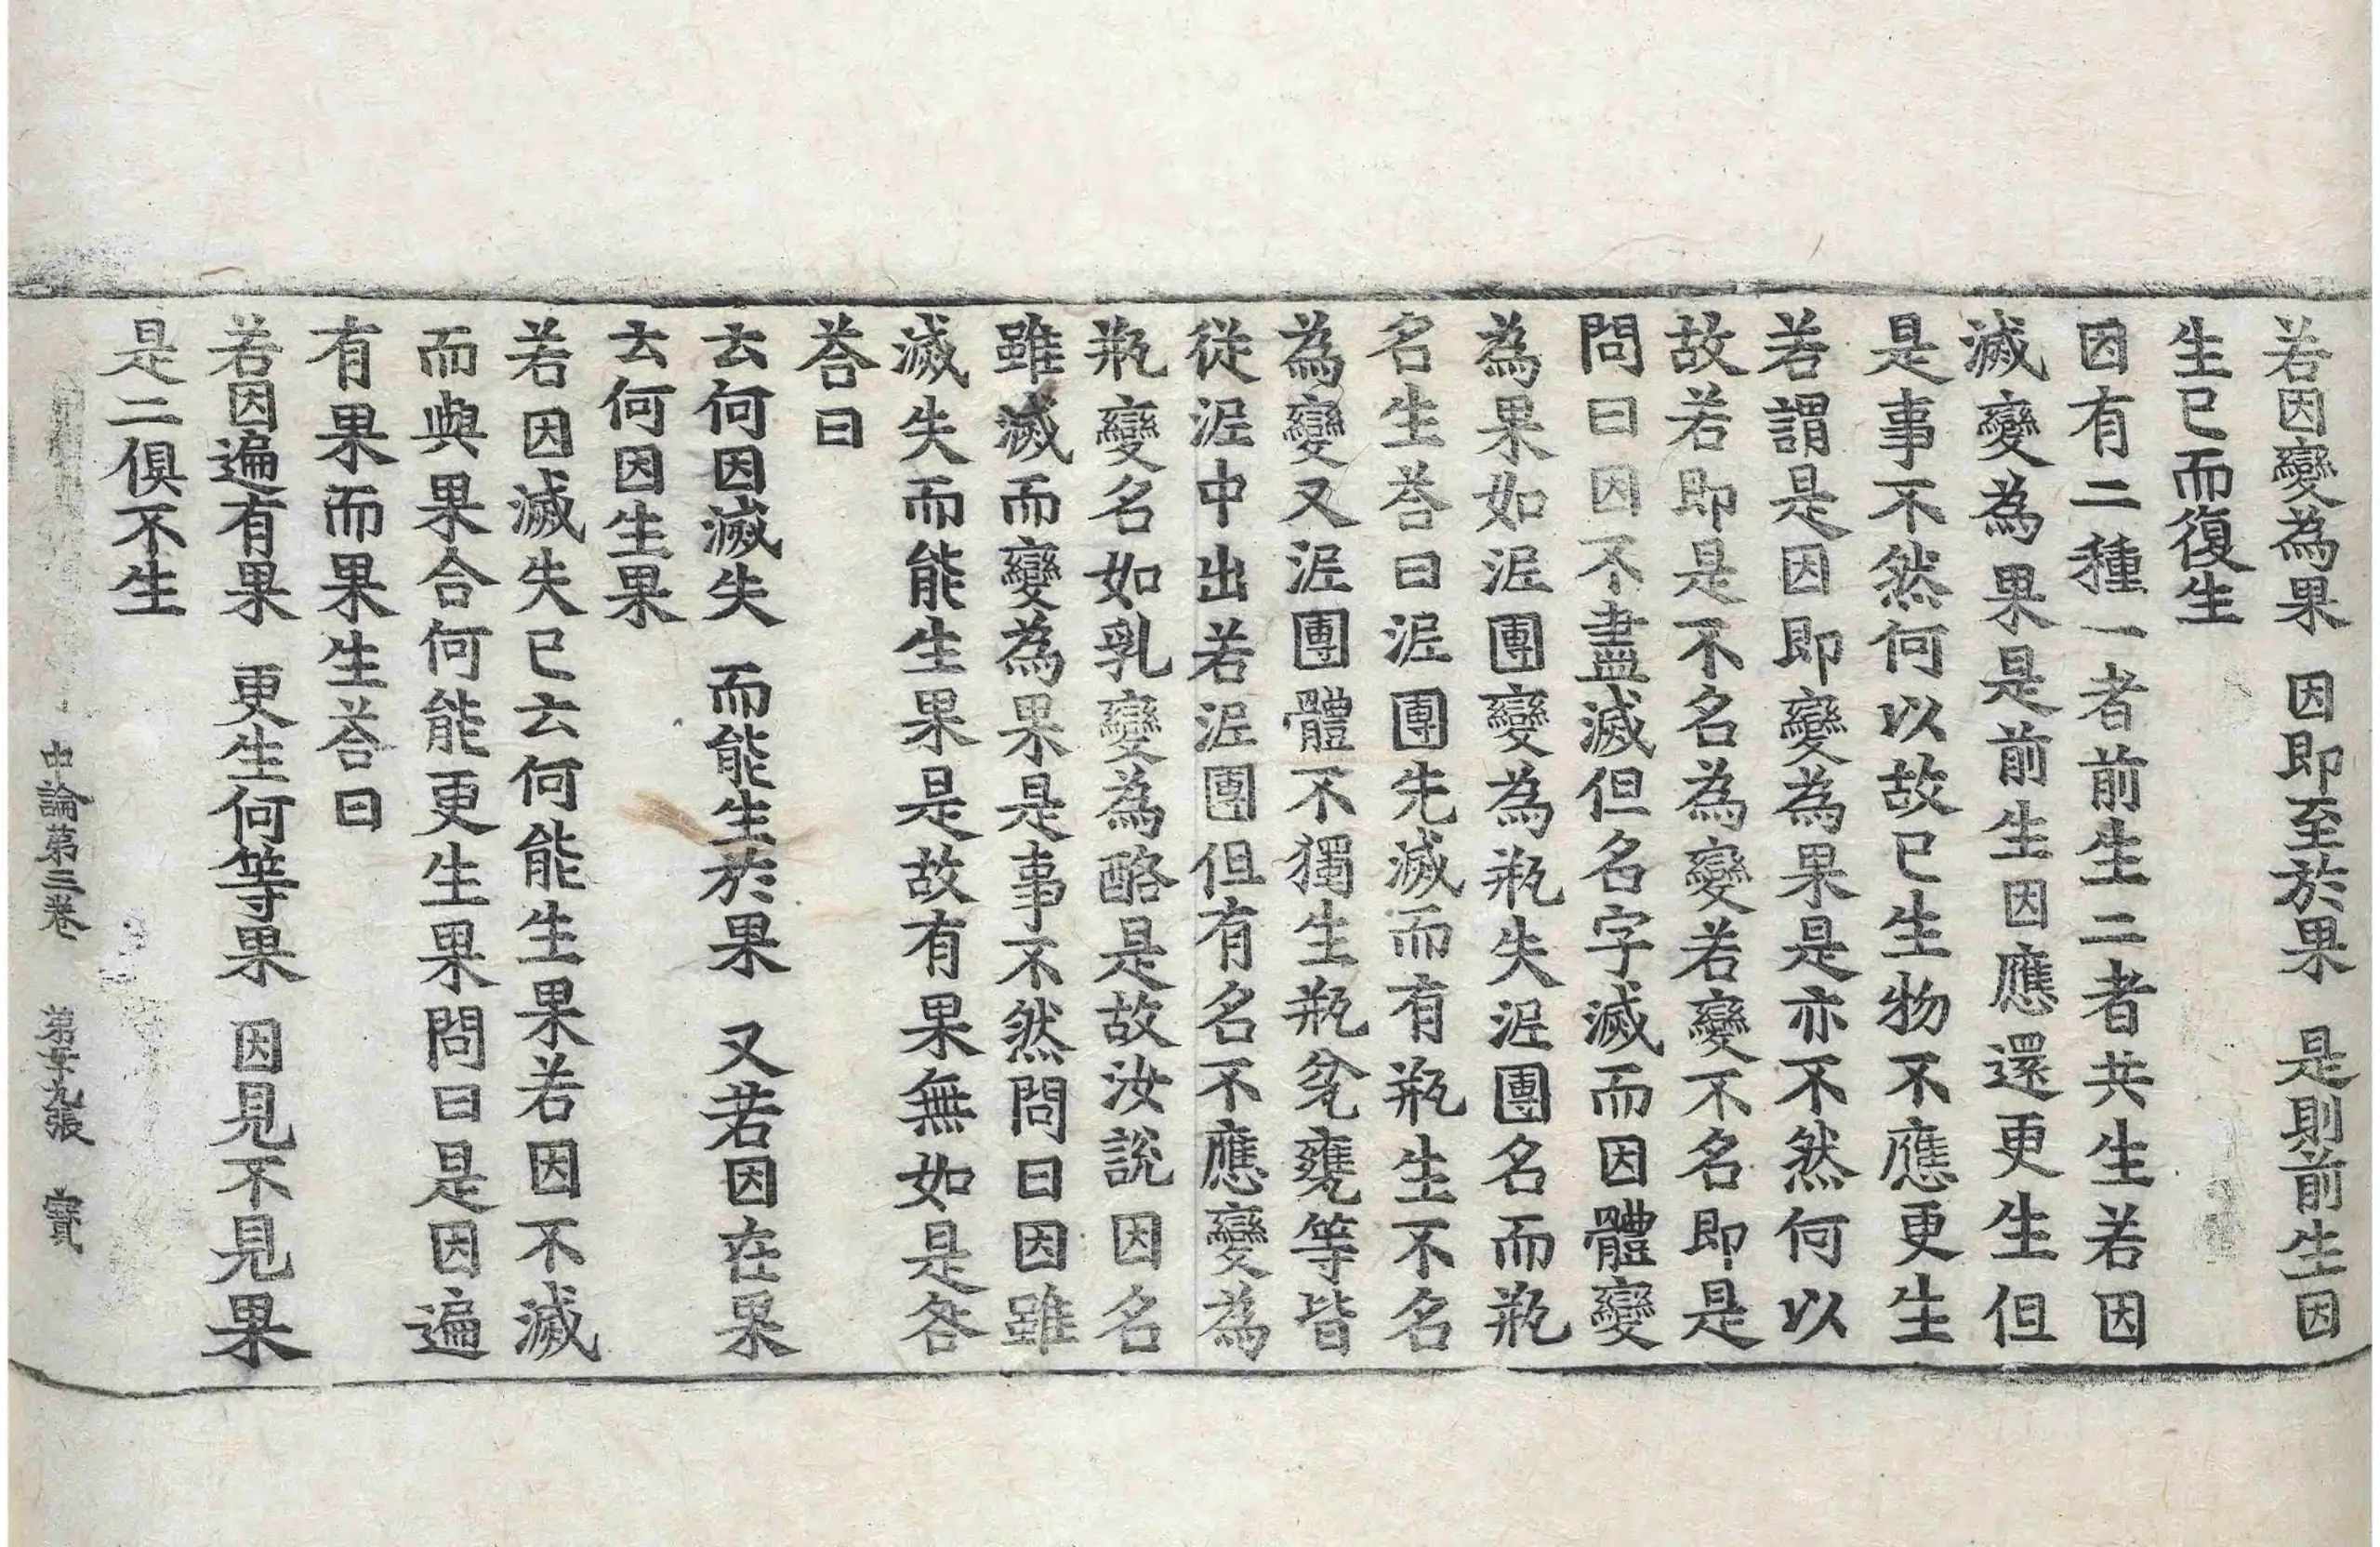 若因變為果　因即至於果　是則前生因
生已而復生
因有二種一者前生二者共生若因
滅變為果是前生因應還更生但
是事不然何以故已生物不應更生
若謂是因即變為果是亦不然何以
故若即是不名為變若變不名即是
問曰因不盡滅但名字滅而因體變
為果如泥團變為瓶失泥團名而瓶
名生荅曰泥團先滅而有瓶生不名
為變又泥團體不獨生瓶瓫甕等皆
從泥中出若泥團但有名不應變為
瓶變名如乳變為酪是故汝說因名
雖滅而變為果是事不然問曰因雖
滅失而能生果是故有果無如是咎
荅曰
云何因滅失　而能生於果　又若因在果
云何因生果
若因滅失已云何能生果若因不滅
而與果合何能更生果問曰是因遍
有果而果生荅曰
若因遍有果　更生何等果　因見不見果
是二俱不生
中論第三卷　第十九張　寶